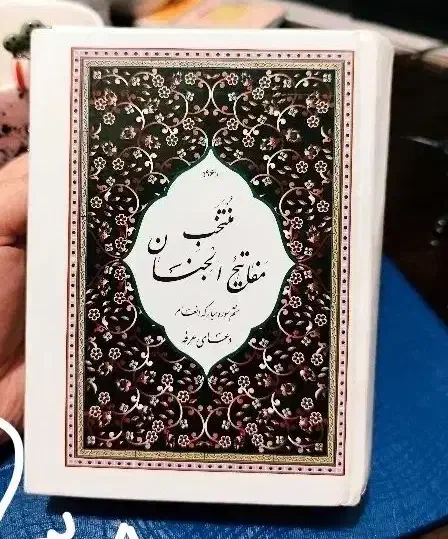 منتخب
مفاتیح الجنان
ختم سوره مبارکه انعام
دعای عرفه